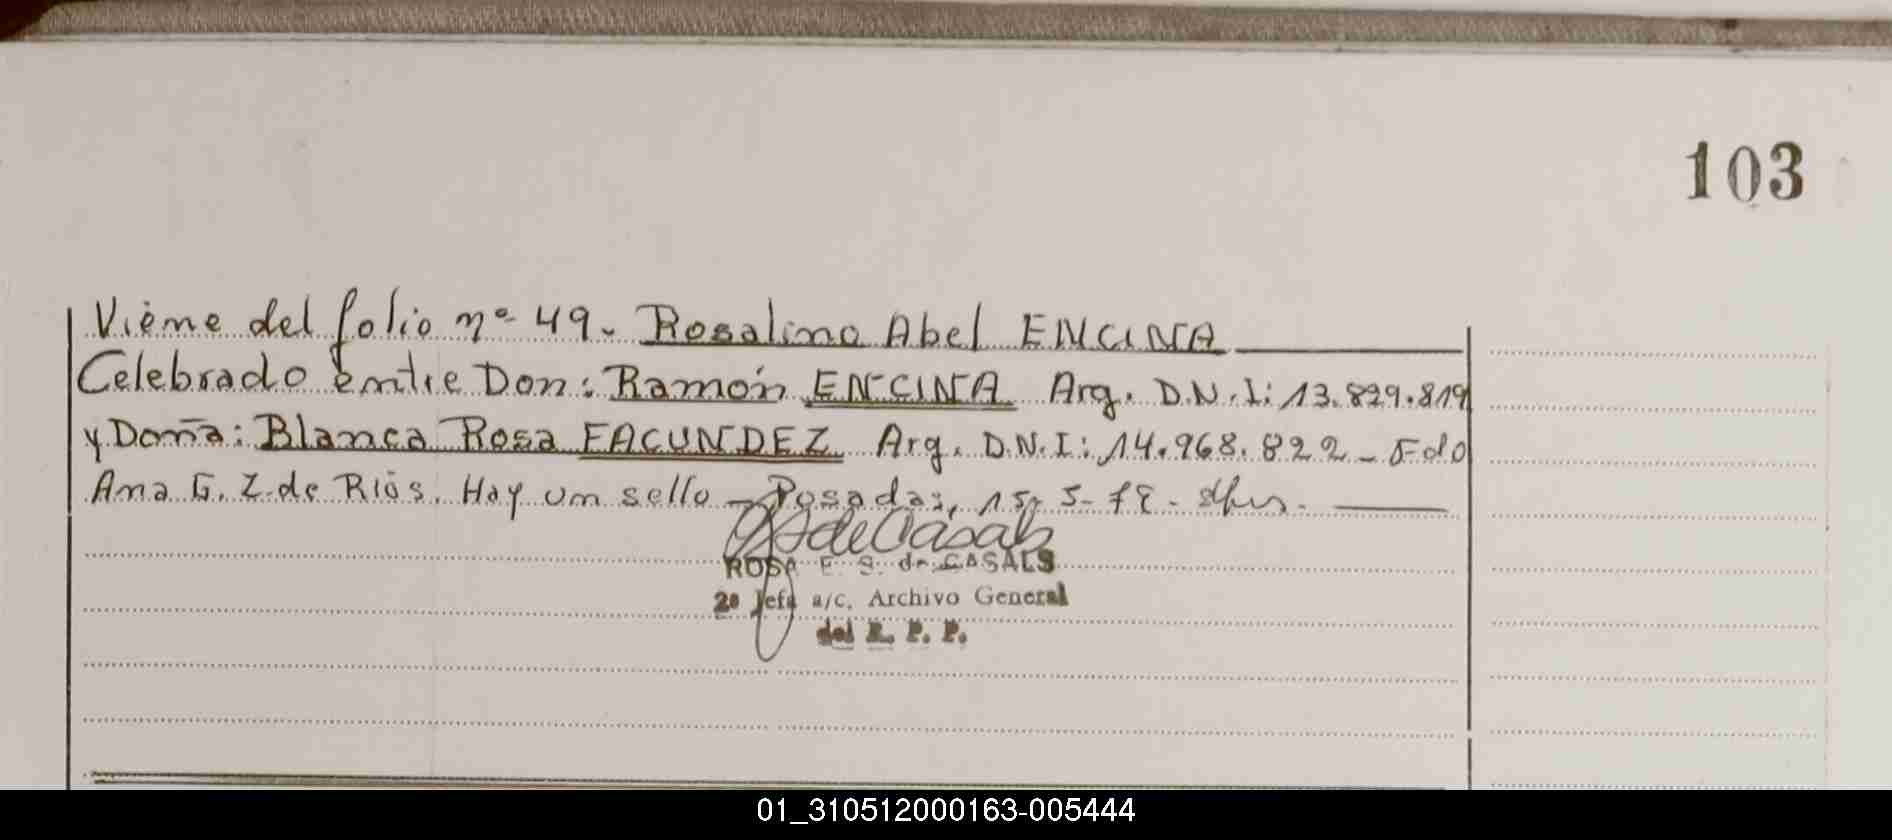 103
Viene del folio nº 49. Rosalino Abel ENCINA
Celebrado entre Don: Ramón ENCINA Arg. D.N.I: 13.829.819
y Doña: Blanca Rosa FACUNDEZ Arg. D.N.I: 14.968.822 - Fdo
Ana G. Z. de Rios. Hay un sello - Posadas, 15-5-
ROSA E. S. de CASALS
2º Jefa a/c. Archivo General
del R. P. P.
01_310512000163-005444